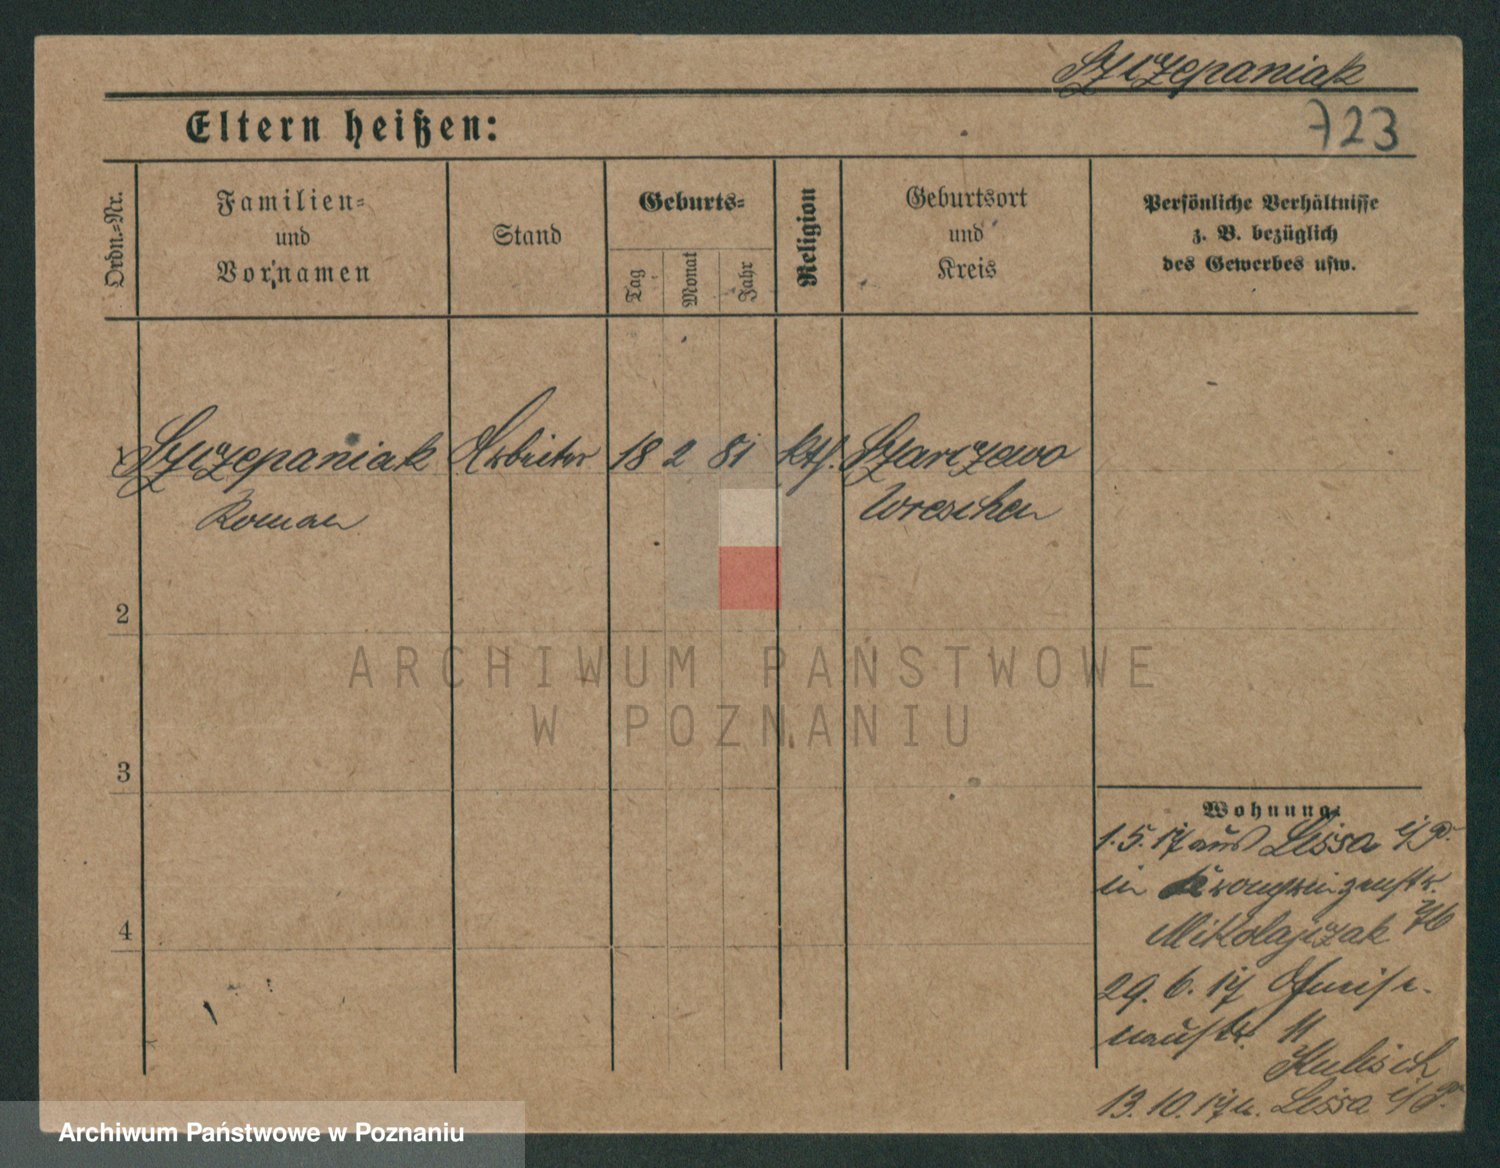 Szczepaniak
Eltern heißen:
723
Ordn.-Nr.
Familien-
und
Vornamen
Stand
Geburts-
Tag
Monat
Jahr
Religion
Geburtsort
und
Kreis
Persönliche Verhältnisse
z. B. bezüglich
des Gewerbes usw.
1 Szczepaniak Arbeiter 18 2 81 kth. Szarczewo
Roman Wreschen
2
3
4
ARCHIWUM PAŃSTWOWE
W POZNANIU
Wohnung:
1.5.17 aus Lissa i/P.
in Kronprinzenstr.
Mikolajczak
29.6.17
11
Kubisch
13.10.17 n. Lissa i/P.
Archiwum Państwowe w Poznaniu